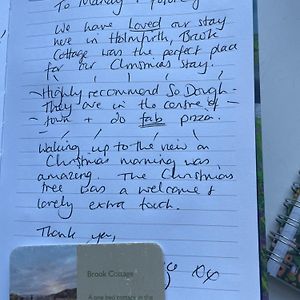 To Mandy + 
We have loved our stay
here in Holmfirth, Brook
Cottage was the perfect place
for our Christmas stay.
Highly recommend So Dough -
They are in the centre of
town + do fab pizza.
Waking up to the view on
Christmas morning was
amazing. The Christmas
tree was a welcome &
lovely extra touch.
Thank you,
Brook Cottage